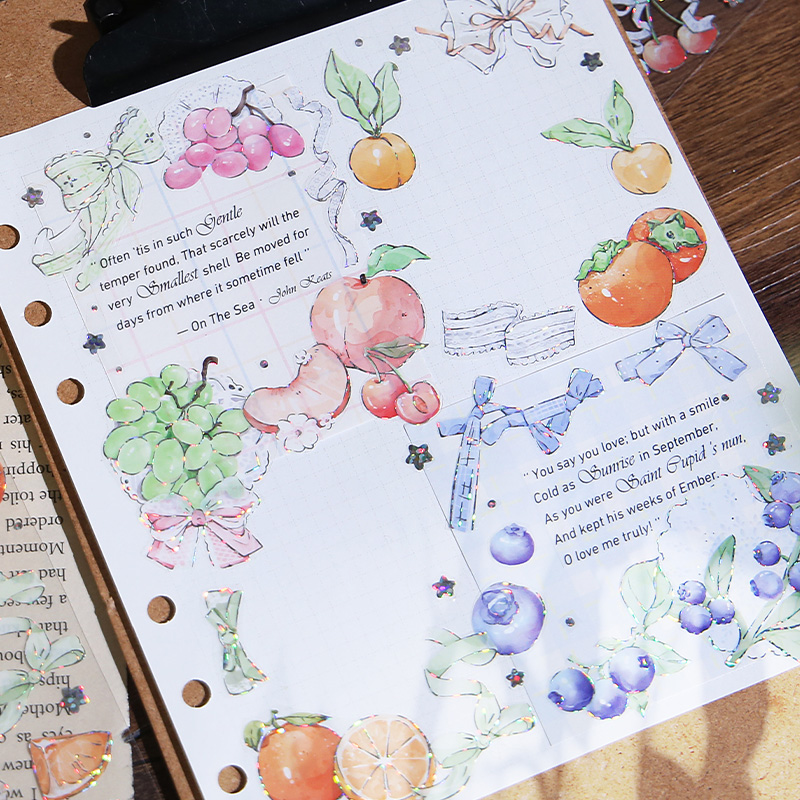 "Often 'tis in such Gentle
temper found, That scarcely will the
very Smallest shell Be moved for
days from where it sometime fell"
— On The Sea · John Keats
"You say you love; but with a smile
Cold as Sunrise in September,
As you were Saint Cupid 's nun,
And kept his weeks of Ember.
O love me truly!"